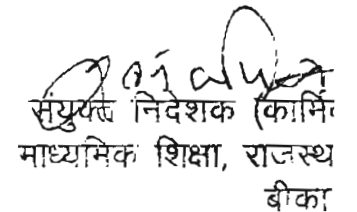 संयुक्त निदेशक (कार्मि
माध्यमिक शिक्षा, राजस्थ
बीका